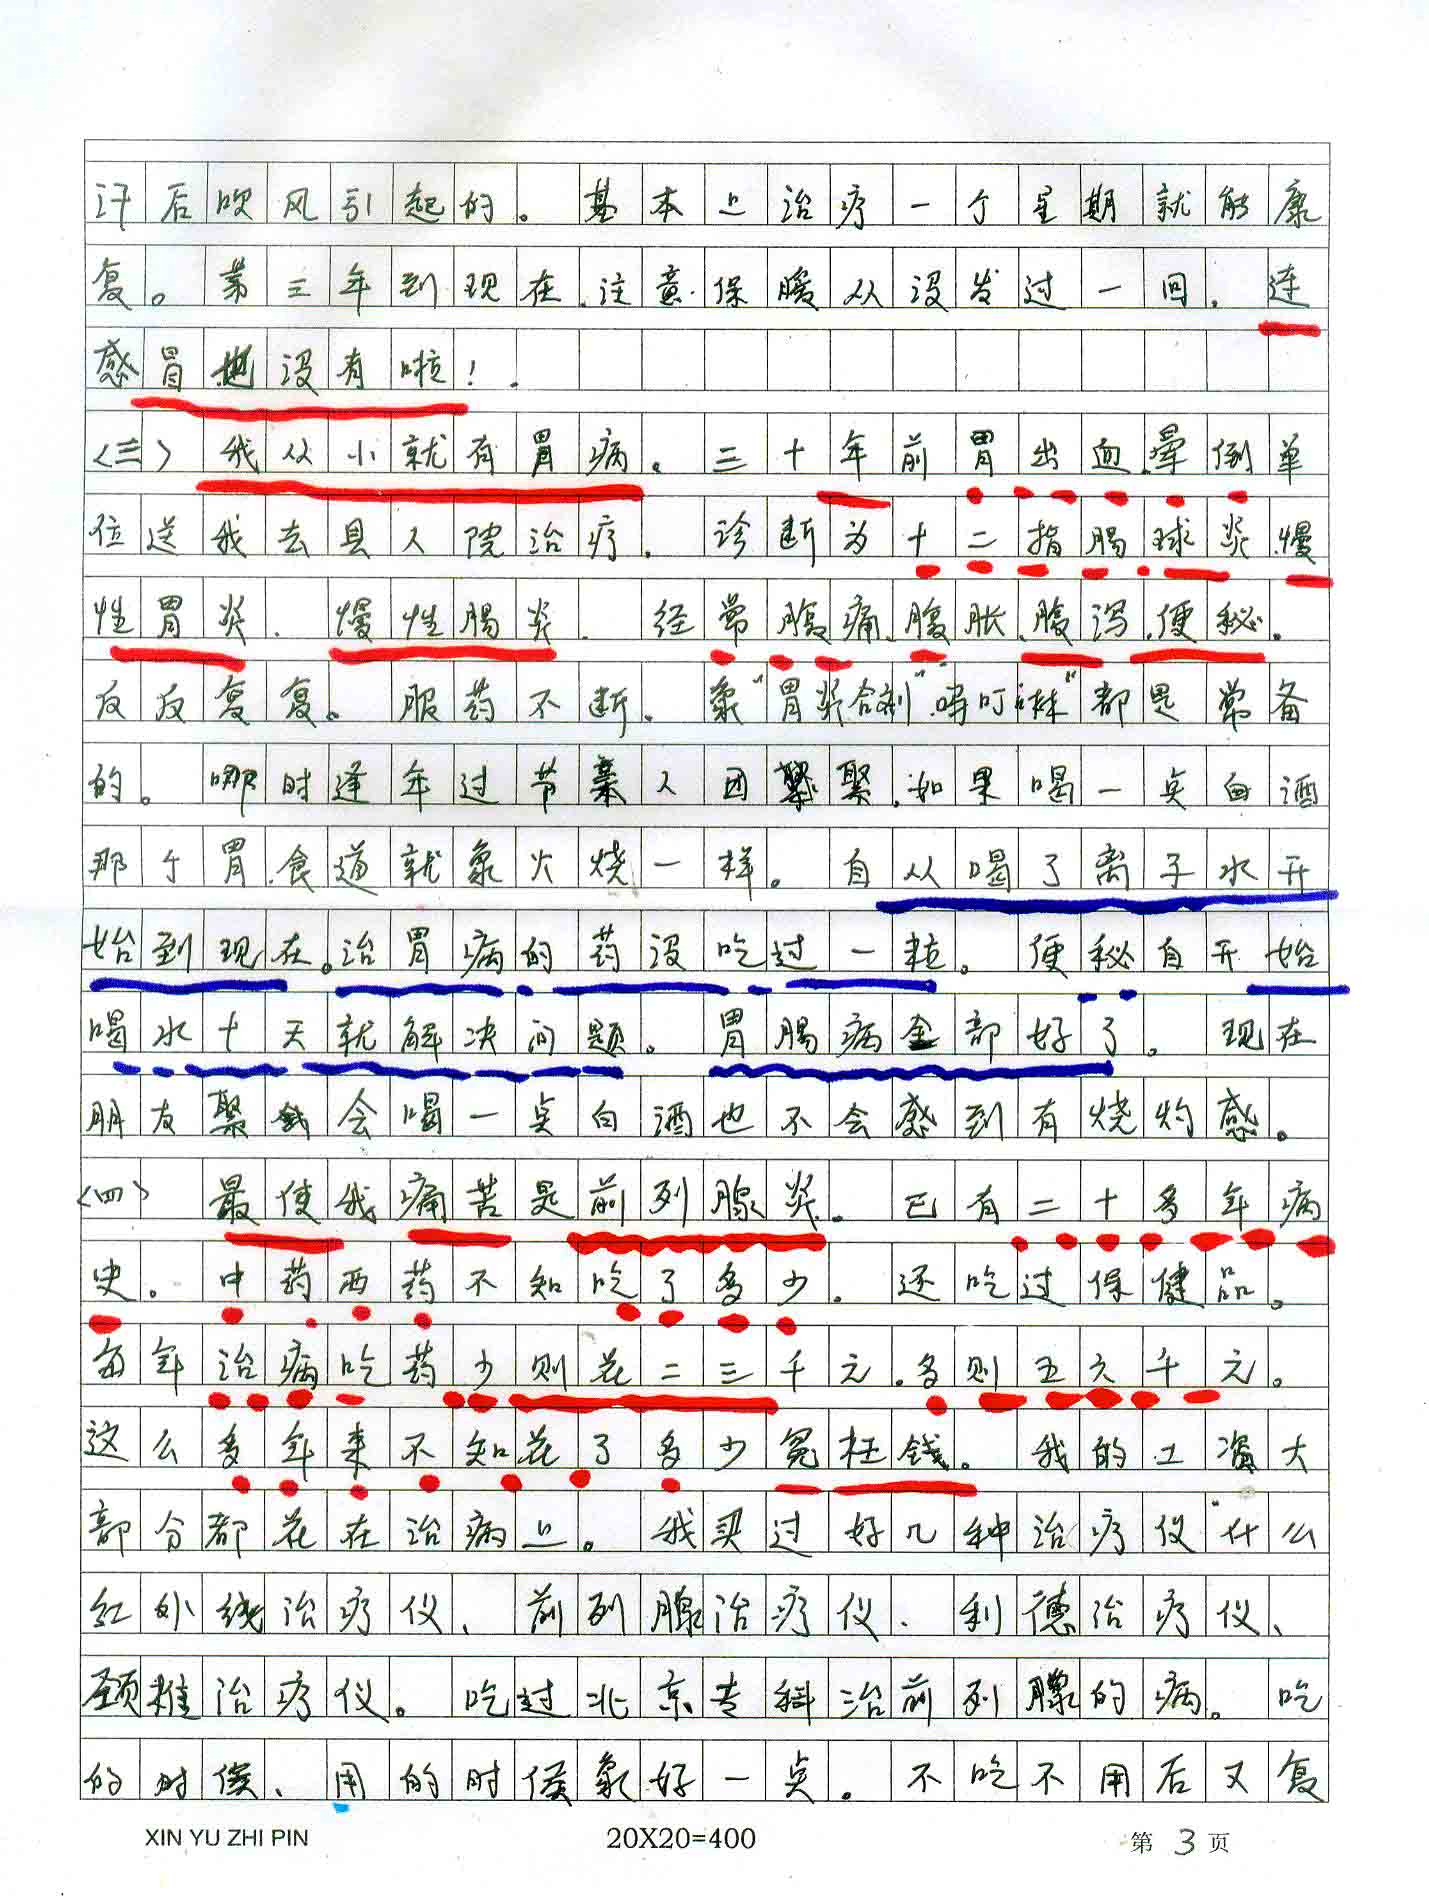 汗后吹风引起的。基本上治疗一个星期就能康
复。第三年到现在,注意保暖从没发过一回,连
感冒也没有啦!
〈三〉我从小就有胃病。三十年前胃出血,晕倒单
位送我去县人院治疗。诊断为十二指肠球炎,慢
性胃炎、慢性肠炎、经常腹痛、腹胀、腹泻、便秘。
反反复复。服药不断。象"胃炎合剂""吗叮啉"都是常备
的。哪时逢年过节家人团聚,如果喝一点白酒
那个胃、食道就象火烧一样。自从喝了离子水开
始到现在。治胃病的药没吃过一粒。便秘自开始
喝水十天就解决问题。胃肠病全部好了。现在
朋友聚会喝一点白酒也不会感到有烧灼感。
〈四〉最使我痛苦是前列腺炎。已有二十多年病
史。中药西药不知吃了多少。还吃过保健品。
每年治病吃药少则花二三千元,多则五六千元。
这么多年来不知花了多少冤枉钱。我的工资大
部分都花在治病上。我买过好几种治疗仪"什么
红外线治疗仪、前列腺治疗仪、利德治疗仪、
颈椎治疗仪。吃过北京专科治前列腺的病。吃
的时候、用的时侯象好一点。不吃不用后又复
XIN YU ZHI PIN 20X20=400 第 3 页